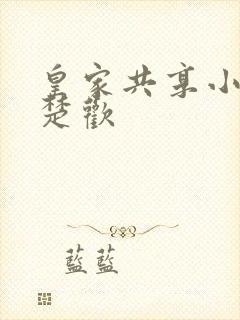 皇家共享小
楚歡
藍藍